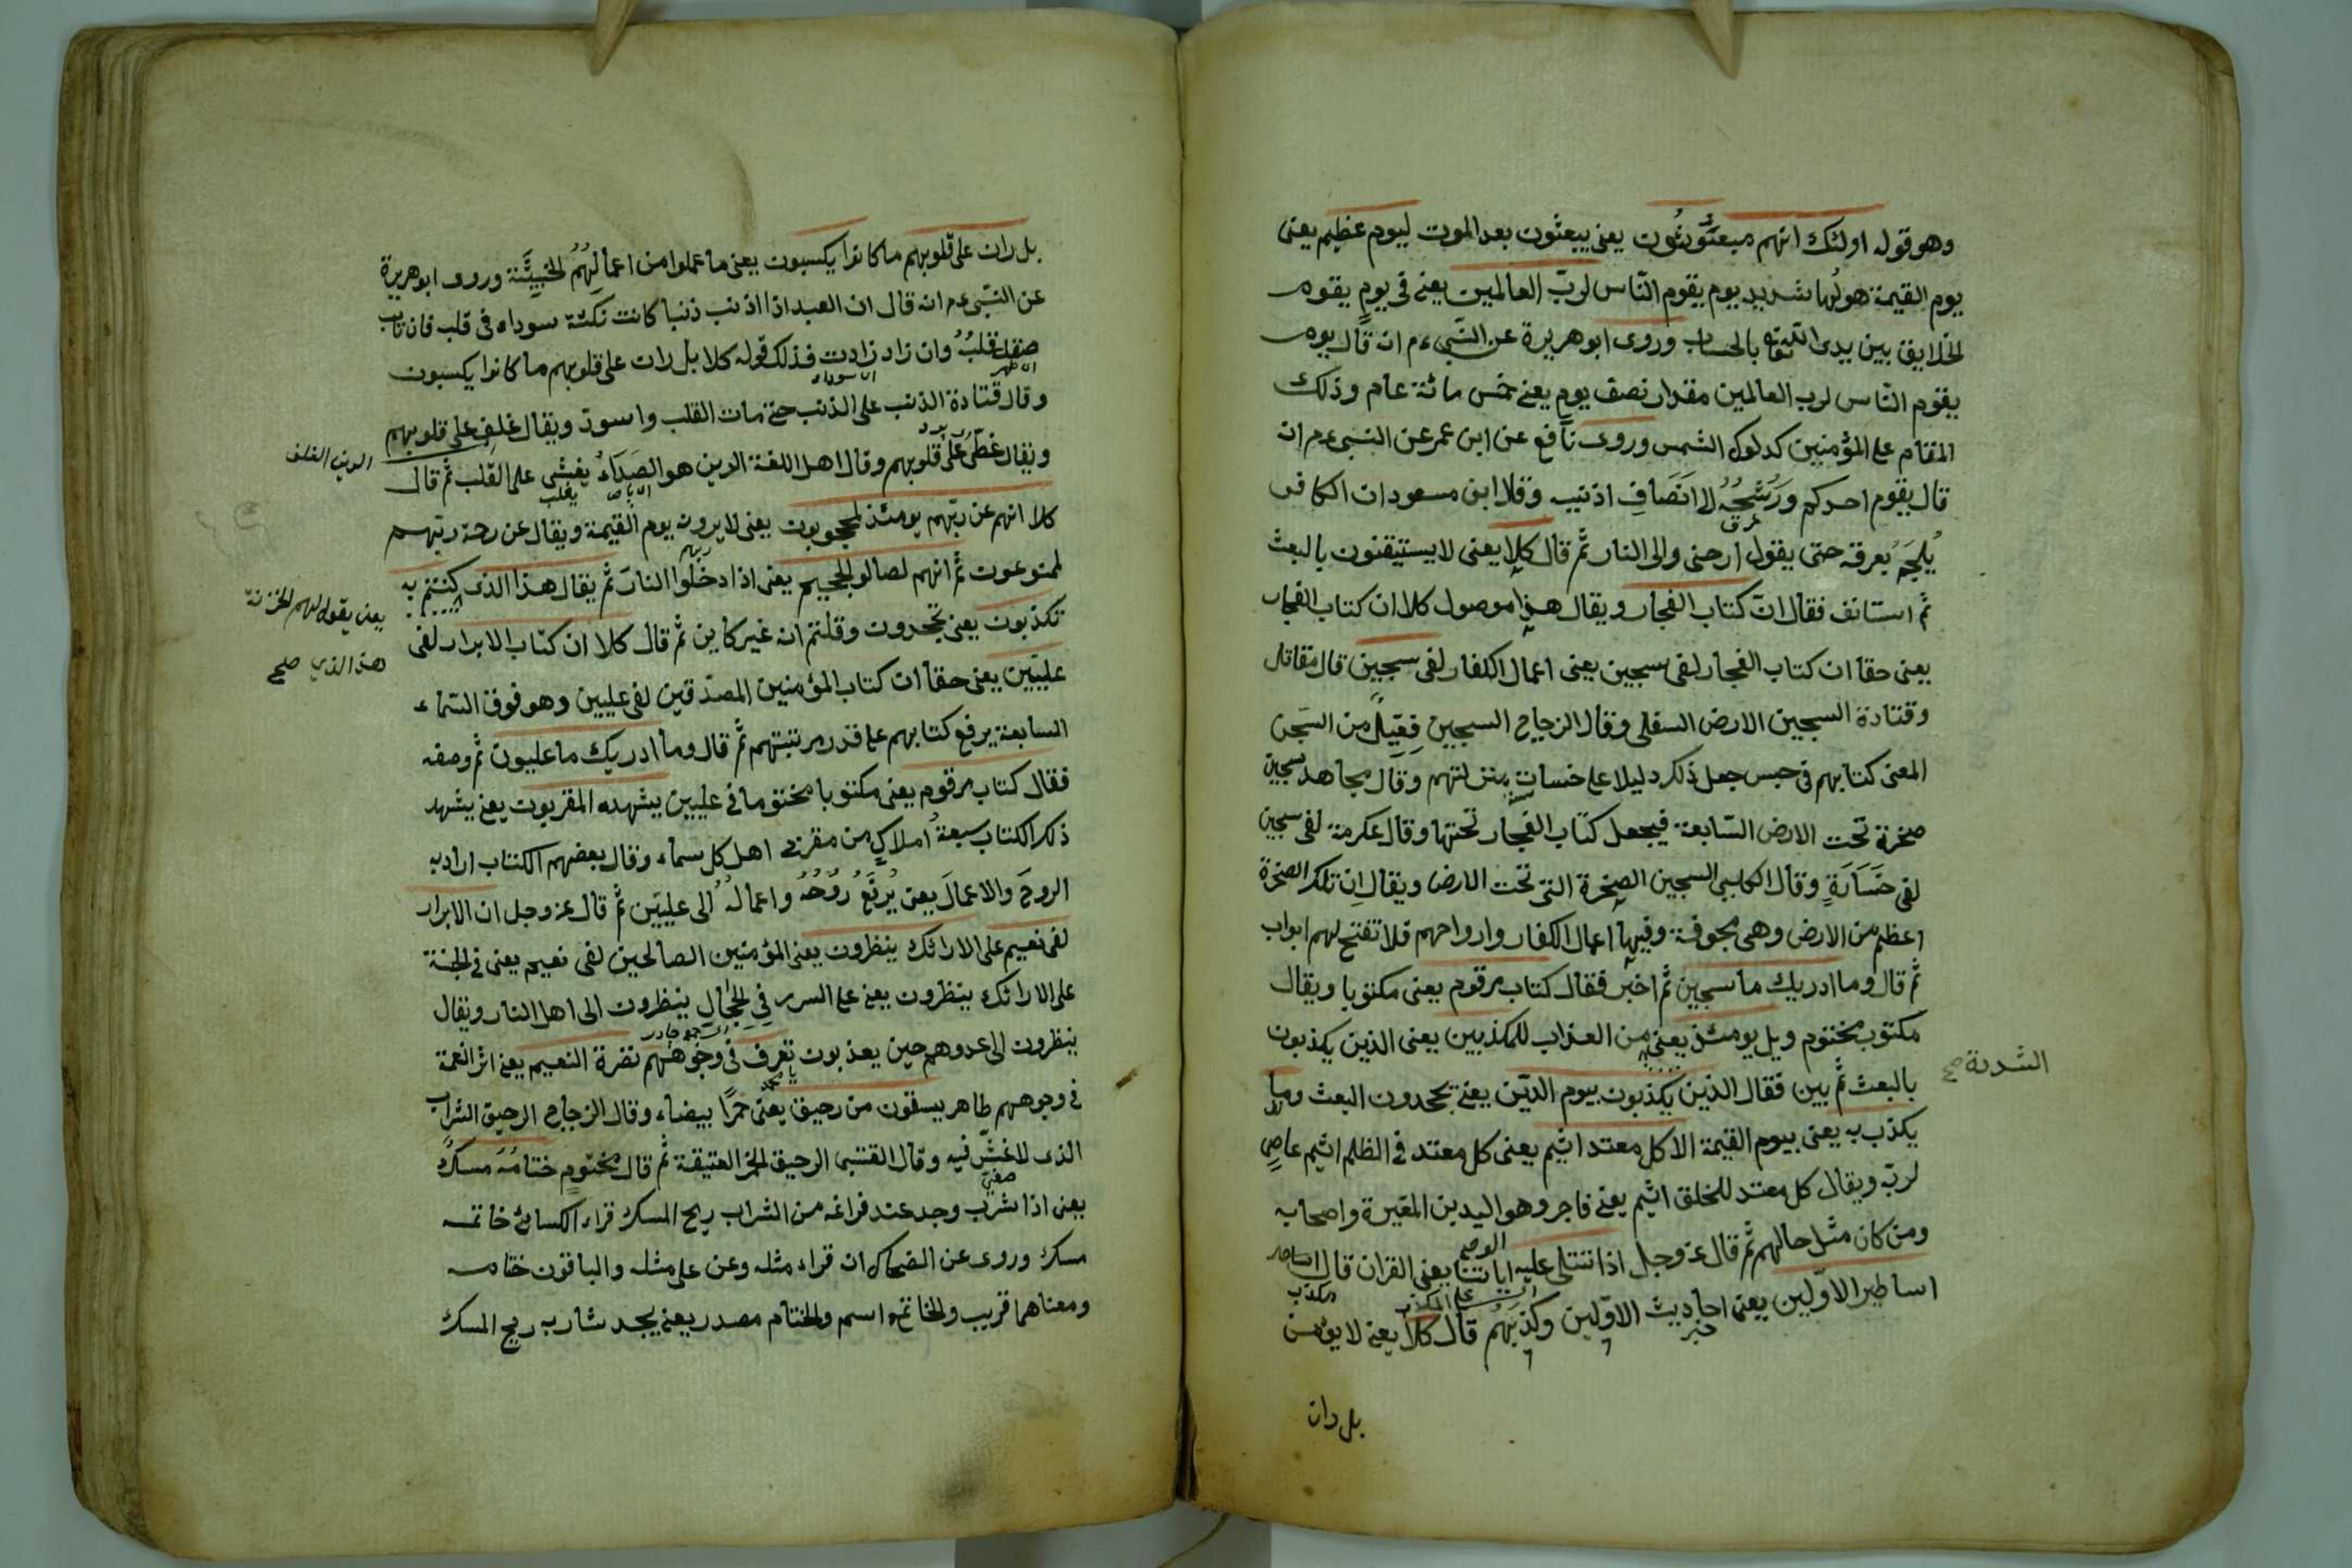 وهو قوله اولئك انهم مبعوثون يعنى يبعثون بعد الموت ليوم عظيم يعنى
يوم القيمة هولها شديد يوم يقوم الناس لرب العالمين يعنى فى يوم يقوم
الخلايق بين يدى الله تعالى بالحساب وروى ابو هريرة عن النبى ءم انه قال يوم
يقوم الناس لرب العالمين مقدار نصف يوم يعنى خمس مائة عام وذلك
المقام على المؤمنين كدلوك الشمس وروى نافع عن ابن عمر عن النبى ءم انه
قال يقوم احدكم ورشحه لا انصاف اذنيه وقال ابن مسعود ان الكافر
يلجم بعرقه حتى يقول ارحنى والى النار ثم قال كلا يعنى لا يستيقنون بالبعث
ثم استانف فقال ان كتاب الفجار ويقال هذا موصول كلا ان كتاب الفجار
يعنى حقا ان كتاب الفجار لفى سجين يعنى اعمال الكفار لفى سجين قال مقاتل
وقتادة السجين الارض السفلى وقال الزجاج السجين فعيل من السجن
المعنى كتابهم فى حبس جعل ذلك دليلا على خساسة منزلتهم وقال مجاهد سجين
صخرة تحت الارض السابعة فيجعل كتاب الفجار تحتها وقال عكرمة لفى سجين
لفى خسارة وقال الكلبى السجين الصخرة التى تحت الارض ويقال ان تلك الصخرة
اعظم من الارض وهى مجوفة وفيها اعمال الكفار وارواحهم فلا تفتح لهم ابواب
ثم قال وما ادريك ما سجين ثم اخبر فقال كتاب مرقوم يعنى مكتوبا ويقال
مكتوب مختوم ويل يومئذ يعنى من العذاب للمكذبين يعنى الذين يكذبون
الشدة صح
بالبعث ثم بين فقال الذين يكذبون بيوم الدين يعنى يجحدون البعث وما
يكذب به يعنى بيوم القيمة الا كل معتد اثيم يعنى كل معتد فى الظلم اثيم عاص
لربه ويقال كل معتد للخلق اثيم يعنى فاجر وهو الوليد بن المغيرة واصحابه
ومن كان مثل حالهم ثم قال عز وجل اذا تتلى عليه اياتنا يعنى القران قال
اساطير الاولين يعنى احاديث الاولين وكذبهم قال كلا يعنى لا يؤمن
بل ران
بل ران على قلوبهم ما كانوا يكسبون يعنى ما عملوا من اعمالهم الخبيثة وروى ابو هريرة
عن النبى ءم انه قال ان العبد اذا اذنب ذنبا كانت نكتة سوداء فى قلبه فان تاب
صقل قلبه وان زاد زادت فذلك قوله كلا بل ران على قلوبهم ما كانوا يكسبون
وقال قتادة الذنب على الذنب حتى مات القلب واسود ويقال غلف على قلوبهم
ويقال غطى على قلوبهم وقال اهل اللغة الرين هو الصداء يغشى على القلب ثم قال
الرين الغلف
كلا انهم عن ربهم يومئذ لمحجوبون يعنى لا يرونه يوم القيمة ويقال عن رحمة ربهم
لممنوعون ثم انهم لصالو الجحيم يعنى اذا دخلوا النار ثم يقال هذا الذى كنتم به
يعنى يقول لهم الخزنة
هذا الذى صح
تكذبون يعنى تجحدون وقلتم انه غير كاين ثم قال كلا ان كتاب الابرار لفى
عليين يعنى حقا ان كتاب المؤمنين المصدقين لفى عليين وهو فوق السماء
السابعة يرفع كتابهم على قدر مرتبتهم ثم قال وما ادريك ما عليون ثم وصفه
فقال كتاب مرقوم يعنى مكتوبا مختوما فى عليين يشهده المقربون يعنى يشهد
ذلك الكتاب سبعة املاك من مقربى اهل كل سماء وقال بعضهم الكتاب اراد به
الروح والاعمال يعنى يرفع روحه واعماله الى عليين ثم قال عز وجل ان الابرار
لفى نعيم على الارائك ينظرون يعنى المؤمنين الصالحين لفى نعيم يعنى فى الجنة
على الارائك ينظرون يعنى على السرر فى الحجال ينظرون الى اهل النار ويقال
ينظرون الى عدوهم حين يعذبون تعرف فى وجوههم نضرة النعيم يعنى اثر النعمة
فى وجوههم ظاهر يسقون من رحيق يعنى خمرا بيضاء وقال الزجاج الرحيق الشراب
الذى لا غش فيه وقال القتبى الرحيق الخمر العتيقة ثم قال مختوم ختامه مسك
يعنى اذا شرب وجد عند فراغه من الشراب ريح المسك قراء الكسائى خاتمه
مسك وروى عن الضحاك انه قراء مثله وعن على مثله والباقون ختامه
ومعناهما قريب والخاتم اسم والختام مصدر يعنى يجد شاربه ريح المسك